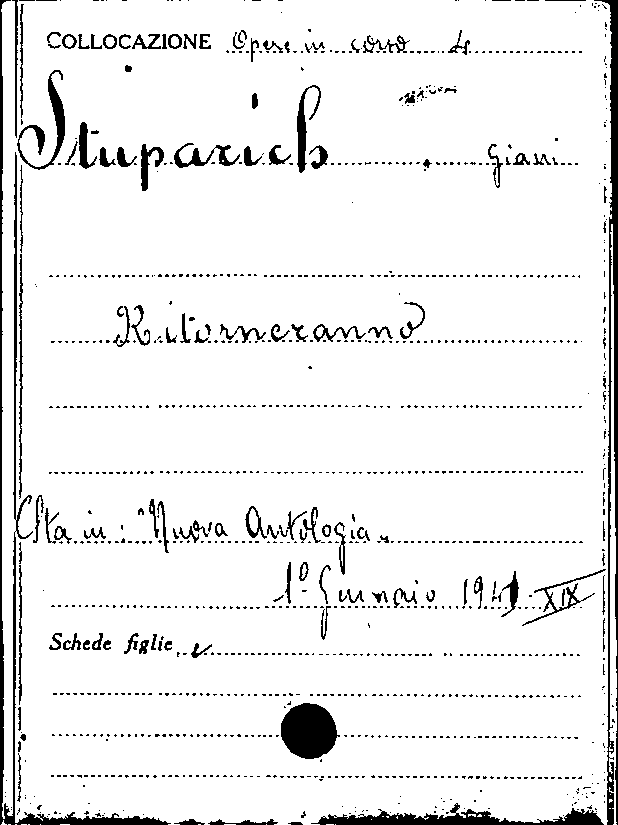 COLLOCAZIONE Opere in corso 4
Stuparich Giani
Ritorneranno
Sta in: "Nuova Antologia„
1º Gennaio 1941 XIX
Schede figlie